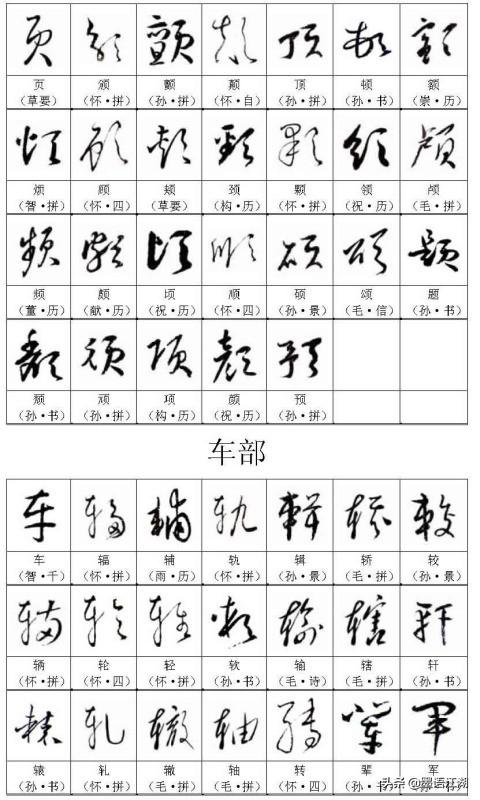 页 颁 颤 颠 顶 顿 额
（草要） （怀·拼） （孙·拼） （怀·自） （孙·拼） （孙·书） （崇·历）
烦 顾 颊 颈 颗 领 颅
（智·拼） （怀·四） （草要） （构·历） （怀·拼） （祝·历） （毛·拼）
频 颇 顷 顺 硕 颂 题
（董·历） （献·历） （祝·历） （怀·四） （孙·景） （毛·信） （孙·书）
颓 顽 项 颜 预
（孙·书） （孙·拼） （构·历） （祝·历） （孙·拼）
车部
车 辐 辅 轨 辑 轿 较
（智·千） （怀·拼） （雨·历） （怀·拼） （孙·景） （毛·拼） （孙·景）
辆 轮 轻 软 输 辖 轩
（怀·拼） （怀·四） （怀·拼） （孙·书） （毛·诗） （毛·拼） （孙·书）
辕 轧 辙 轴 转 辈 军
（孙·书） （怀·拼） （毛·拼） （孙·书） （怀·四） （孙·书）
头条 @墨语江湖